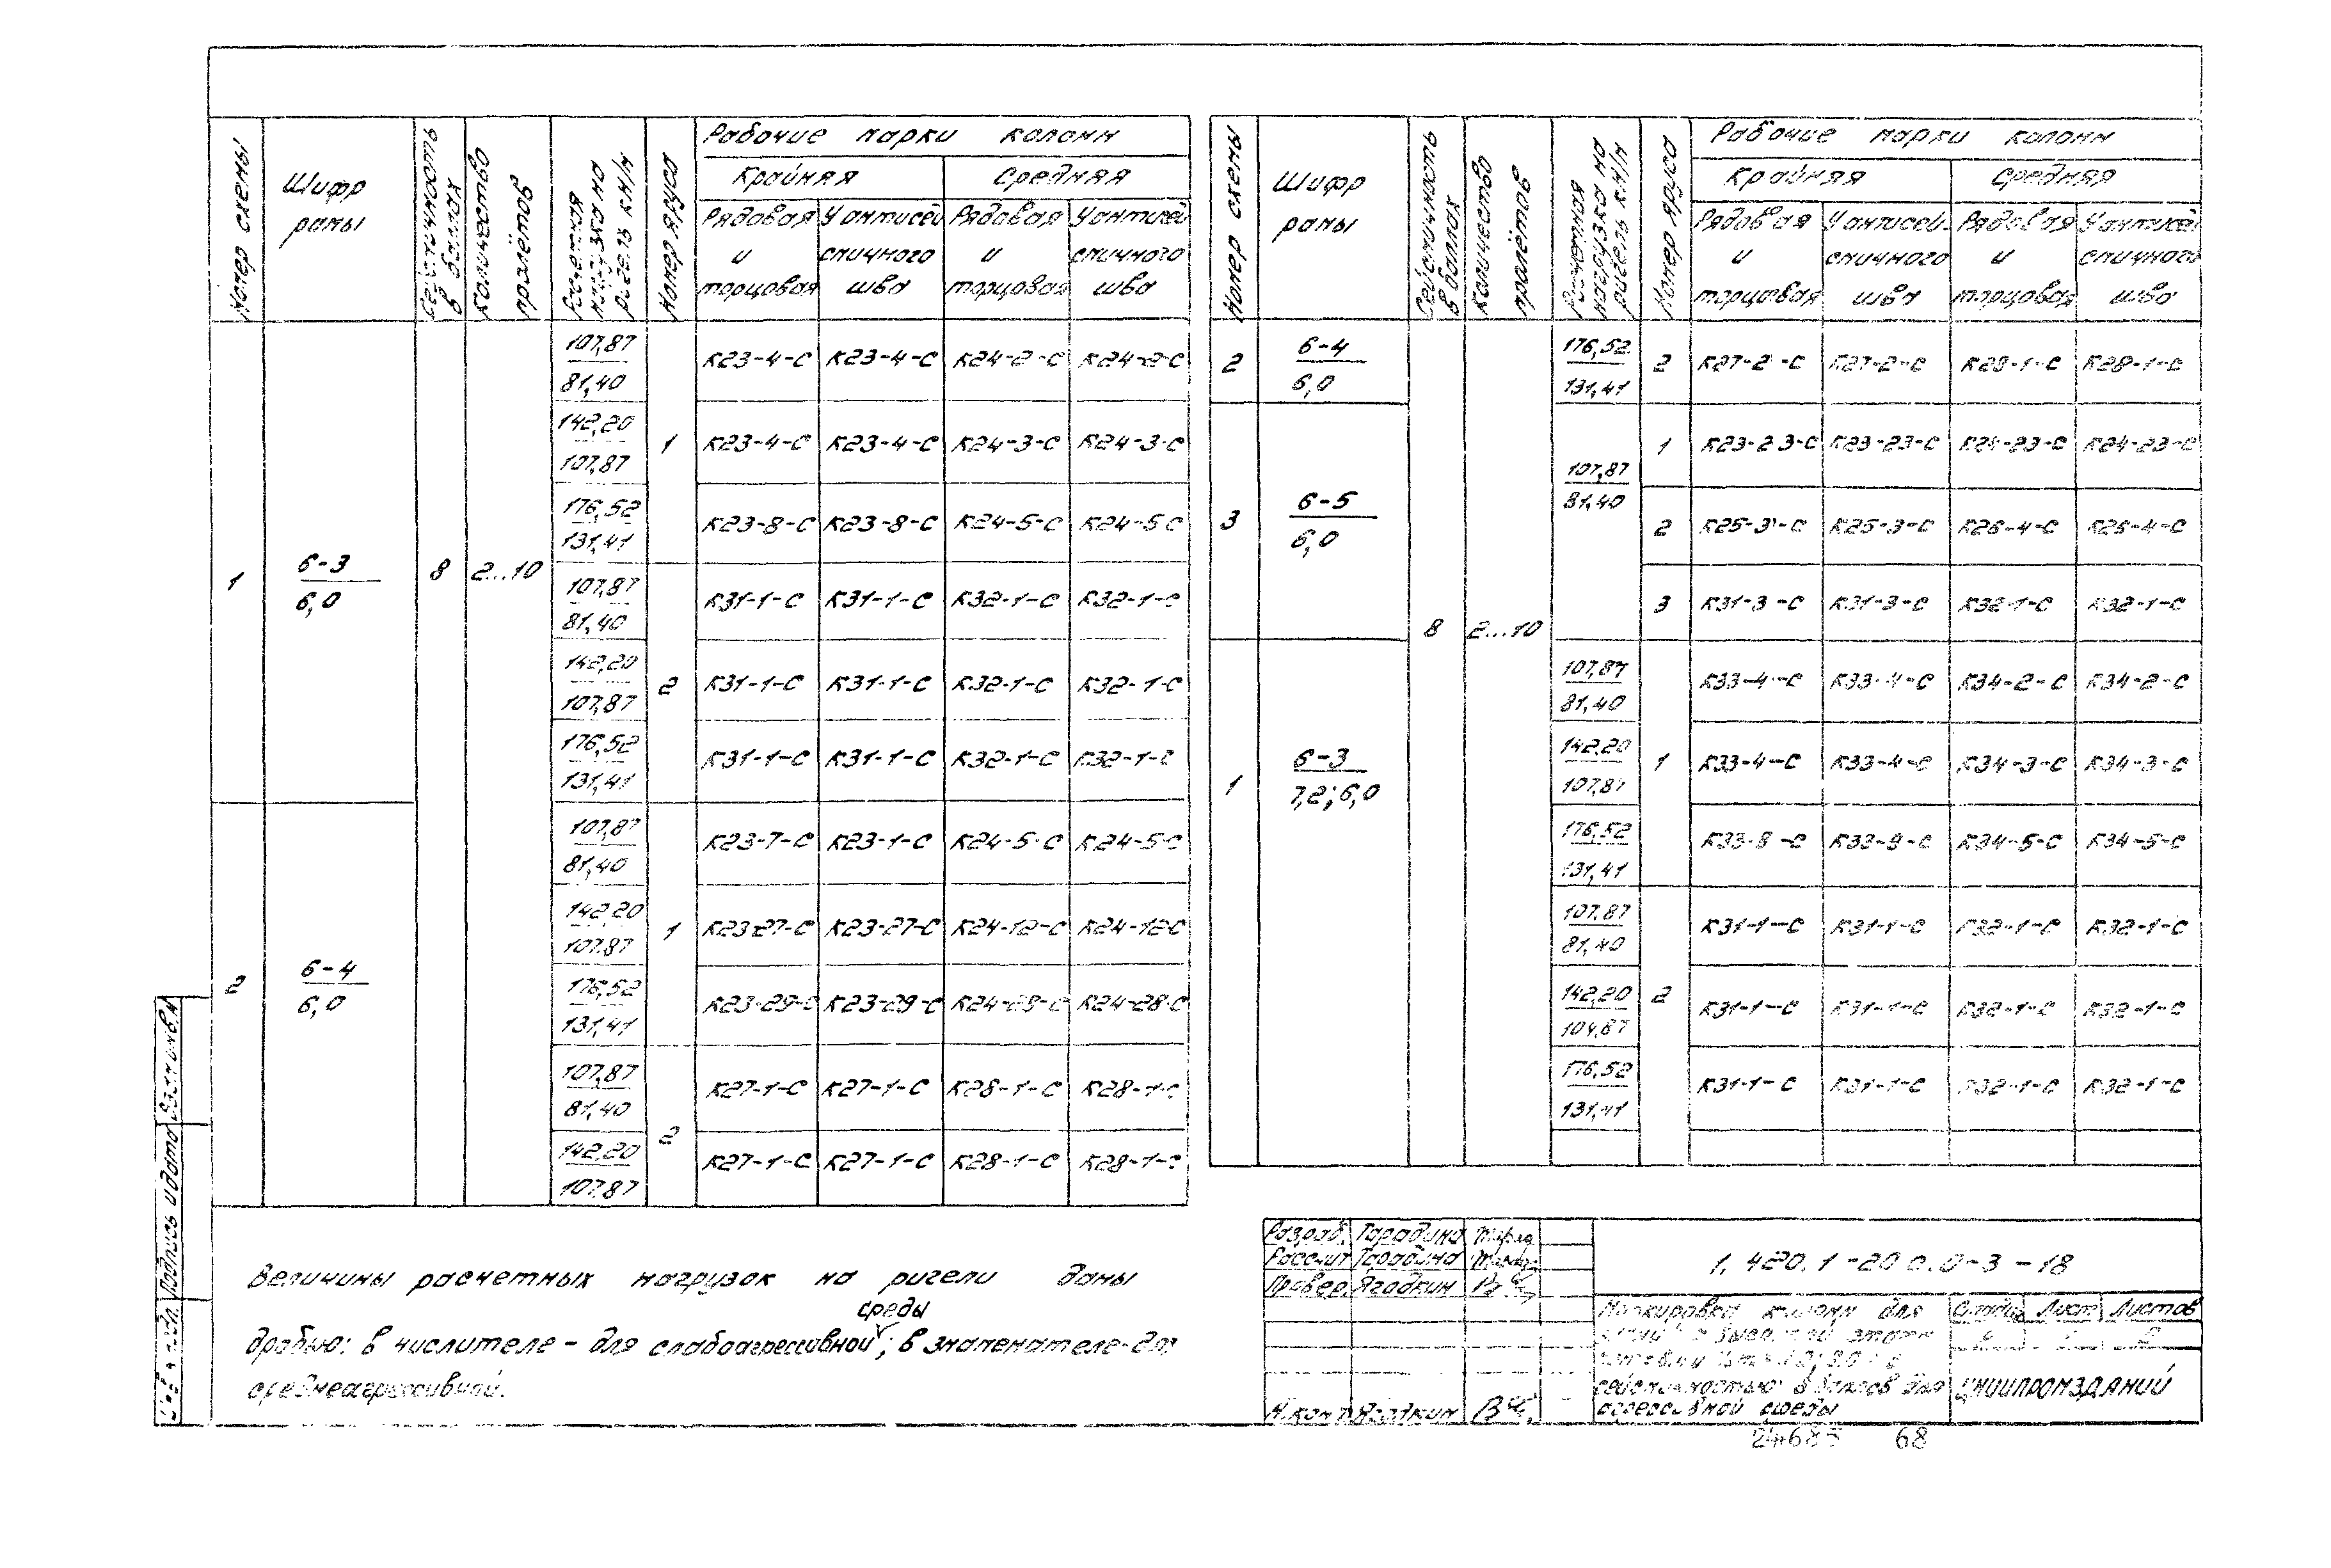 Номер схемы
Шифр рамы
Сейсмичность в баллах
Количество пролётов
Расчетная нагрузка на ригель кН/м
Номер яруса
Рабочие марки колонн
Крайняя Средняя
Рядовая У антисей Рядовая У антисей
и смичного и смичного
торцовая шва торцовая шва
1 6-3 / 6,0 8 2...10
107,87 / 81,40 К23-4-С К23-4-С К24-2-С К24-2-С
142,20 / 107,87 1 К23-4-С К23-4-С К24-3-С К24-3-С
176,52 / 131,41 К23-8-С К23-8-С К24-5-С К24-5-С
107,87 / 81,40 К31-1-С К31-1-С К32-1-С К32-1-С
142,20 / 107,87 2 К31-1-С К31-1-С К32-1-С К32-1-С
176,52 / 131,41 К31-1-С К31-1-С К32-1-С К32-1-С
2 6-4 / 6,0
107,87 / 81,40 К23-7-С К23-1-С К24-5-С К24-5-С
142,20 / 107,87 1 К23-27-С К23-27-С К24-12-С К24-12-С
176,52 / 131,41 К23-29-С К23-29-С К24-28-С К24-28-С
107,87 / 81,40 К27-1-С К27-1-С К28-1-С К28-1-С
142,20 / 107,87 2 К27-1-С К27-1-С К28-1-С К28-1-С
Номер схемы
Шифр рамы
Сейсмичность в баллах
Количество пролётов
Расчетная нагрузка на ригель кН/м
Номер яруса
Рабочие марки колонн
Крайняя Средняя
Рядовая У антисей- Рядовая У антисей
и смичного и смичного
торцовая шва торцовая шва
2 6-4 / 6,0 176,52 / 131,41 2 К27-2-С К27-2-С К28-1-С К28-1-С
3 6-5 / 6,0 8 2...10 107,87 / 81,40
1 К23-23-С К23-23-С К24-23-С К24-23-С
2 К25-3-С К25-3-С К26-4-С К26-4-С
3 К31-3-С К31-3-С К32-1-С К32-1-С
1 6-3 / 7,2; 6,0
107,87 / 81,40 К33-4-С К33-4-С К34-2-С К34-2-С
142,20 / 107,87 1 К33-4-С К33-4-С К34-3-С К34-3-С
176,52 / 131,41 К33-8-С К33-8-С К34-5-С К34-5-С
107,87 / 81,40 К31-1-С К31-1-С К32-1-С К32-1-С
142,20 / 104,87 2 К31-1-С К31-1-С К32-1-С К32-1-С
176,52 / 131,41 К31-1-С К31-1-С К32-1-С К32-1-С
Величины расчетных нагрузок на ригели даны
дробью: в числителе – для слабоагрессивной среды; в знаменателе – для
среднеагрессивной.
Разраб. Тарадина
Рассчит Тарадина
Провер. Ягодкин
Н.конт Ягодкин
1.420.1-20с.0-3-18
Маркировка колонн для
сейсмичностью 8 баллов для
агрессивной среды
Стадия Лист Листов
ЦНИИПРОМЗДАНИЙ
Подпись и дата
24685 68